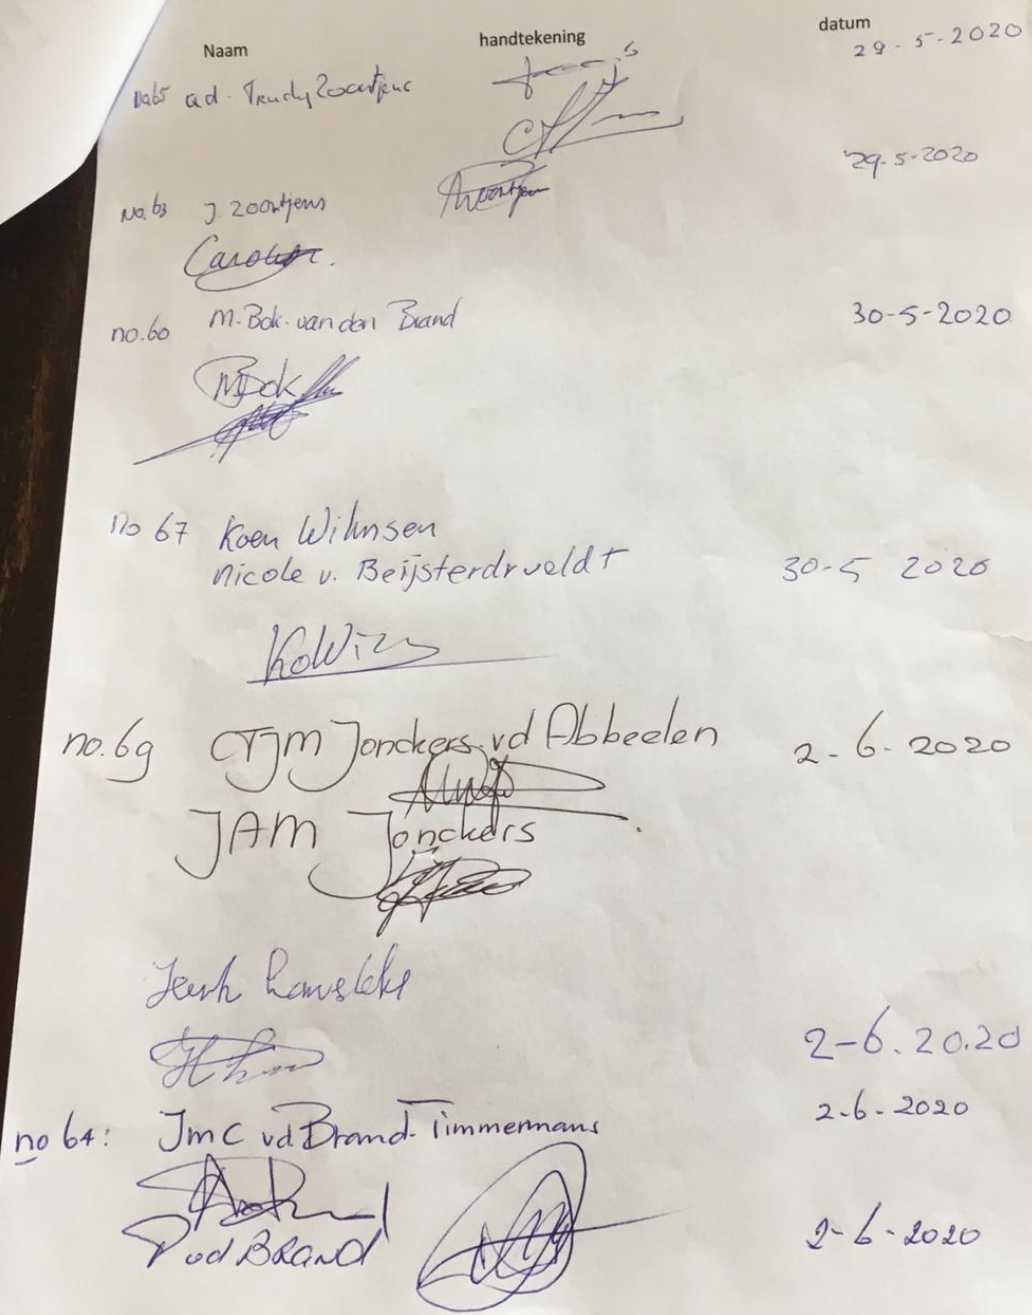 Naam handtekening datum
29-5-2020
no 65 ad. Trudy Zoontjens
29-5-2020
No. 63 J. Zoontjens
no. 60 M. Bok. van den Brand 30-5-2020
MBok
no 67 Koen Wilmsen
Nicole v. Beijsterdrveldt 30-5 2020
KoWi
no. 69 CTJM Jonckers. vd Abbeelen 2-6-2020
JAM Jonckers
Henk
2-6.20.20
no 64: JMC vd Brand-Timmermans 2-6-2020
P vd BRAND 2-6-2020